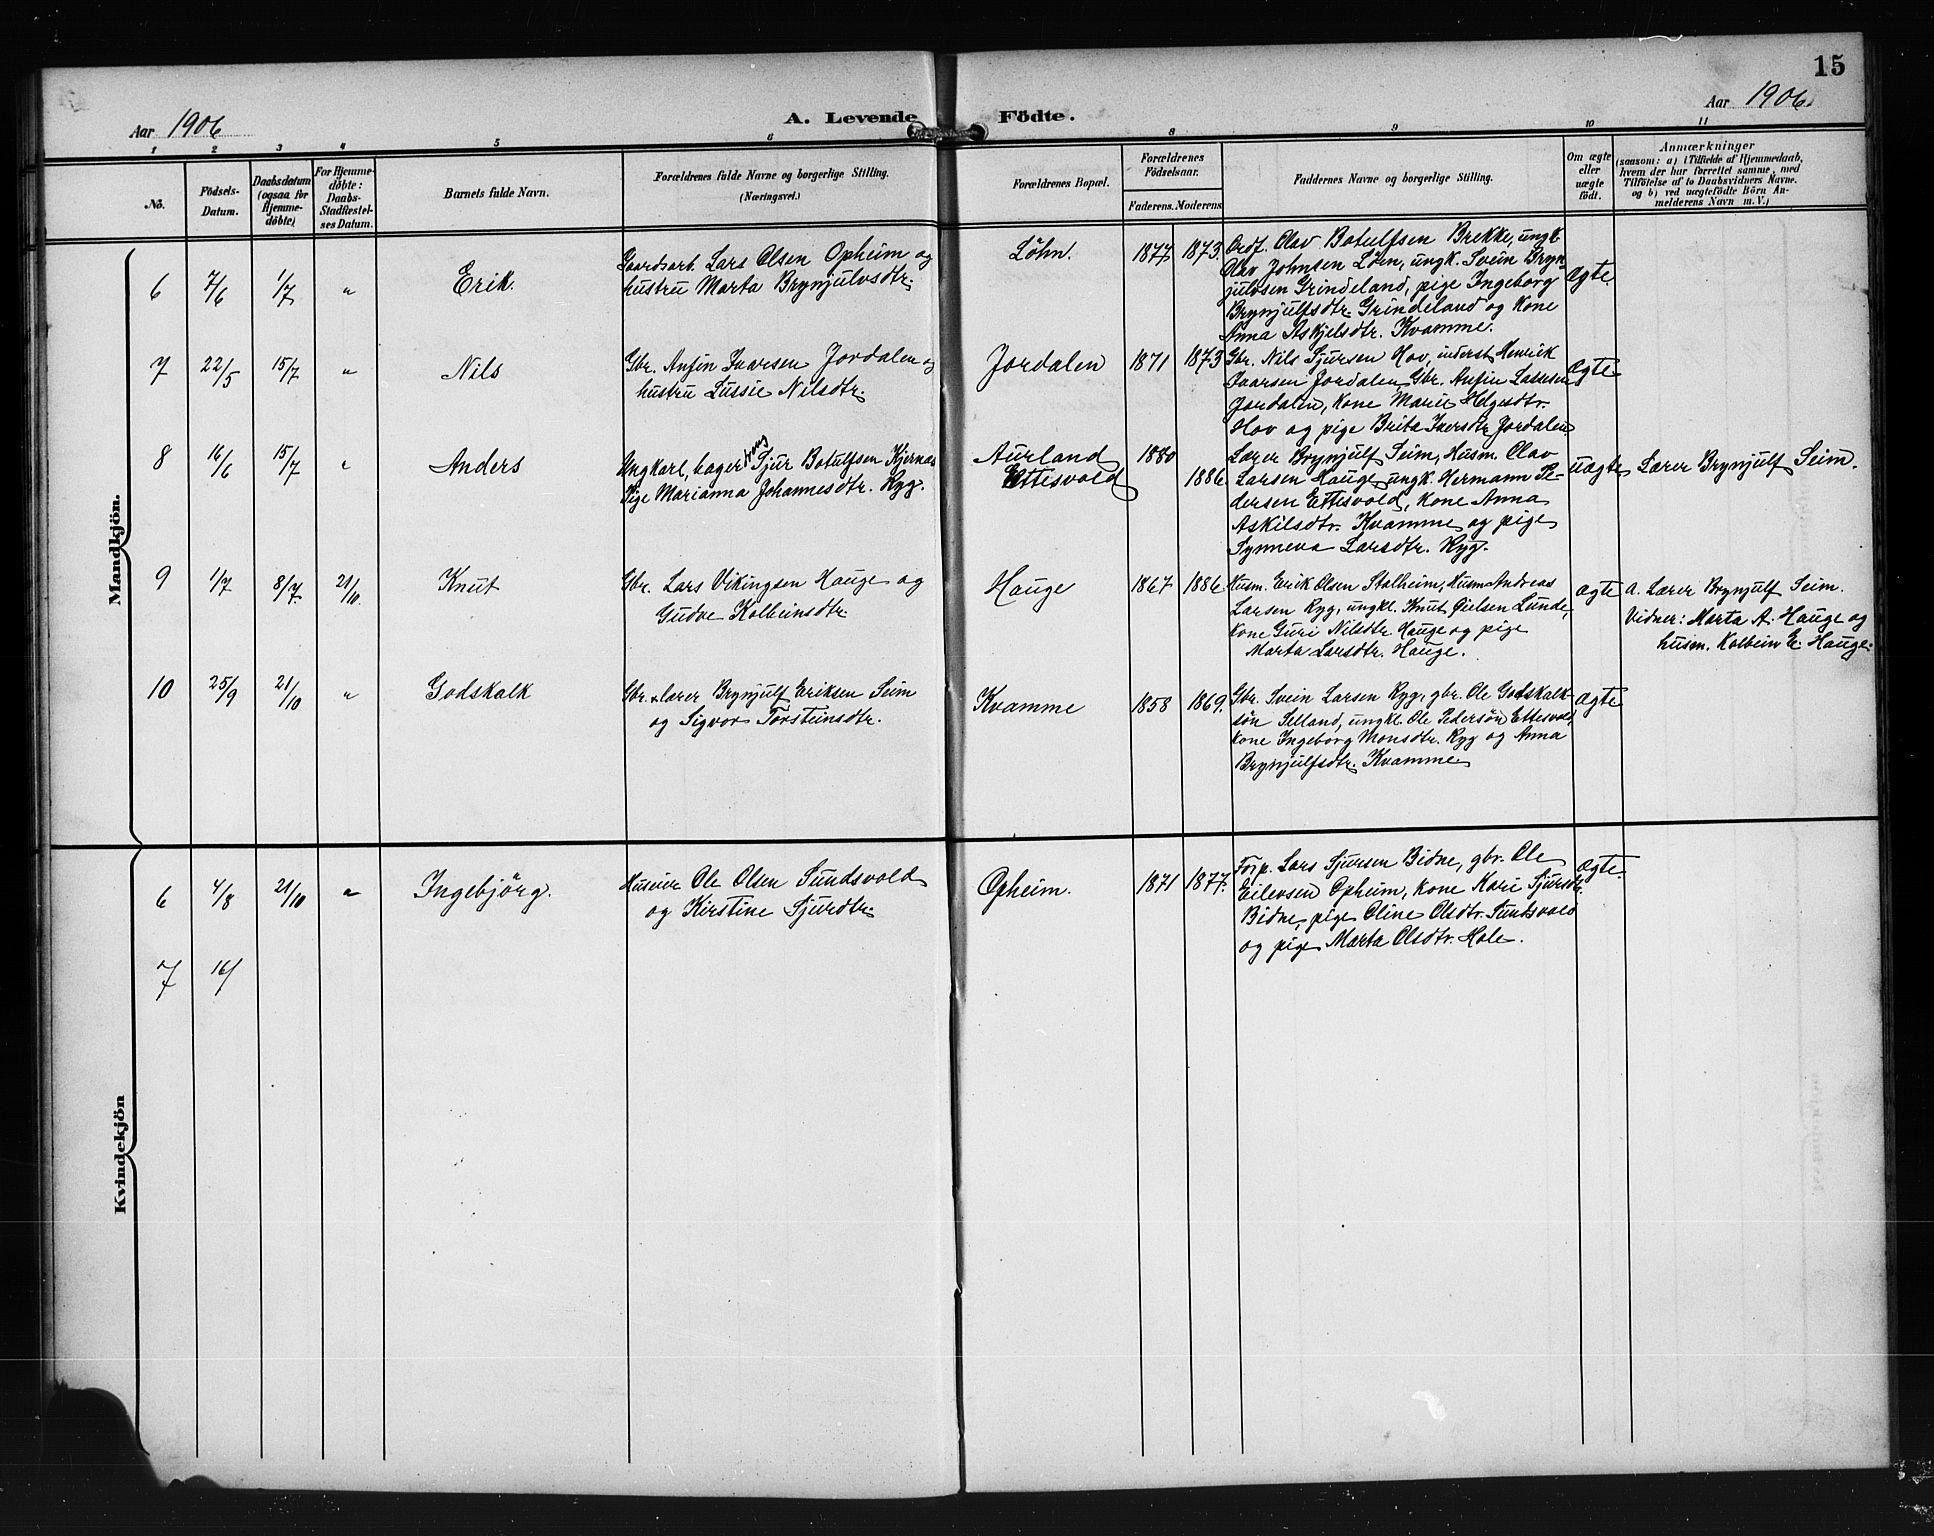 15
Aar 1906
A. Levende Födte.
Aar 1906.
1 2 3 4 5 6 8 9 10 11
No.
Födsels-Datum.
Daabsdatum (ogsaa for Hjemme-döbte).
For Hjemme-döbte: Daabs-Stadfæstel-ses Datum.
Barnets fulde Navn.
Forældrenes fulde Navne og borgerlige Stilling. (Næringsvei.)
Forældrenes Bopæl.
Forældrenes Födselsaar.
Faderens. Moderens
Faddernes Navne og borgerlige Stilling.
Om ægte eller uægte födt.
Anmærkninger
(saasom: a) i Tilfælde af Hjemmedaab,
hvem der har forrettet samme, med
Tilföielse af to Daabsvidners Navne.
og b) ved uægtefödte Börn An-
melderens Navn m. V.)
Mandkjön.
6 7/6 1/7 " Erik.
Gaardsarb. Lars Olsen Opheim og
hustru Marta Brynjulvsdtr.
Löhn. 1877 1873.
Ordf. Olav Botulfsen Brekke, ungk
Olav Johnsen Löhn, ungk. Svein Bryn-
julvsen Grindeland, pige Ingeborg
Brynjulfsdtr. Grindeland og kone
Anna Askjelsdtr. Kvamme.
Ægte
7 22/5 15/7 " Nils
Gbr. Anfin Ivarsen Jordalen og
hustru Lussie Nilsdtr.
Jordalen 1871 1873
Gbr. Nils Sjursen Hov, inderst Henrik
Ivarsen Jordalen, Gbr. Anfin Lassesen
Jordalen, kone Marie Helgesdtr.
Hov og pige Brita Iversdtr Jordalen.
Ægte
8 16/6 15/7 " Anders
Ungkarl, bager Sjur Botulfsen Kjernes
Pige Marianna Johannesdtr. Ryg.
Aurland 1880
Ettesvold 1886
Lærer Brynjulf Seim, Husm. Olav
Larsen Hauge, ungk. Hermann Pe-
dersen Ettesvold, kone Anna
Askilsdtr. Kvamme og pige
Synneva Larsdtr. Ryg.
uægte Lærer Brynjulf Seim.
9 1/7 8/7. 21/10. Knut
Gbr. Lars Vikingsen Hauge og
Gudve Kolbeinsdtr.
Hauge 1867 1886
Husm. Erik Olsen Stalheim, Husm Andreas
Larsen Ryg, ungkl. Knut Gielsen Lunde,
kone Guri Nilsdtr Hauge og pige
Marta Larsdtr. Hauge.
ægte
a. Lærer Brynjulf Seim.
Vidner: Marta A. Hauge og
husm. Kolbein E. Hauge.
10 25/9 21/10 " Godskalk
Gbr. & lærer Brynjulf Eriksen Seim
og Sigvor Torsteinsdtr.
Kvamme 1858 1869.
Gbr. Svein Larsen Ryg, gbr. Ole Godskalk-
sön Selland, ungkl. Ole Pedersön Ettesvold,
kone Ingeborg Monsdtr. Ryg og Anna
Brynjulfsdtr. Kvamme
ægte
Kvindekjön
6 4/8 21/10 " Ingebjörg.
Huseier Ole Olsen Sundsvold
og Kirstine Sjurdtr.
Opheim. 1871 1877.
Forp. Lars Sjursen Bidne, gbr. Ole
Eilevsen Opheim, kone Kari Sjursdtr.
Bidne, pige Oline Olsdtr. Sundsvold
og pige Marta Olsdtr. Hole.
ægte.
7 16/